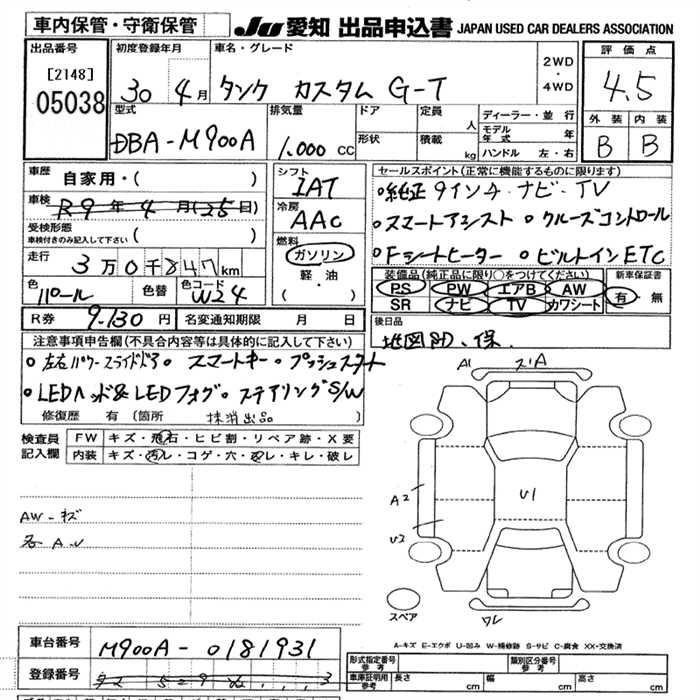 車内保管・守衛保管
JU 愛知 出品申込書 JAPAN USED CAR DEALERS ASSOCIATION
出品番号 初度登録年月 車名・グレード 評価点
[2148]
05038
30 4月 タンク カスタム G-T
2WD
・
4WD
4.5
型式 排気量 ドア 定員 人 ディーラー・並行 外装 内装
DBA-M900A 1.000 CC 形状 積載 kg モデル年式 年 B B
ハンドル 左・右
車歴 自家用・( ) シフト IAT セールスポイント(正常に機能するものに限ります)
車検 R9年4月(25日) 冷房 AAC ・純正9インチ・ナビ・TV
受検形態 ( )
車検付きのみ記入して下さい
・スマートアシスト ・クルーズコントロール
走行 3万0千847km 燃料 ガソリン ・Fシートヒーター ・ビルトインETC
軽油
( )
色 パール 色替 色コード W24
装備品(純正品に限り○をつけてください) 新車保証書
PS PW エアB AW 有・無
SR ナビ TV カワシート
R券 9.130円 名変通知期限 月 日
後日品
地図SD、保
注意事項申告欄(不具合内容等は具体的に記入して下さい)
・左右パワースライドドア ・スマートキー ・プッシュスタート
・LEDヘッド&LEDフォグ ・ステアリングS/W
修復歴 有(箇所 抹消出品
検査員記入欄 FW キズ・飛石・ヒビ割・リペア跡・X要
内装 キズ・汚レ・コゲ・穴・
キレ・破レ
A1
U1
A2
U2
AW-キズ
各A.U
スペア
A-キズ E-エクボ U-凹み W-補修跡 S-サビ C-腐食 XX-交換済
車台番号 M900A-0181931
登録番号
形式指定番号 参考 類別区分番号 参考
車庫証明用 参考 長さ cm 幅 cm 高さ cm